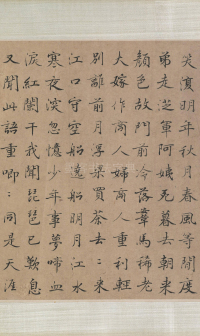 笑復明年秋月春風等閒度
弟走從軍阿姨死暮去朝來
顏色故門前冷落鞍馬稀老
大嫁作商人婦商人重利輕
別離前月浮梁買茶去〻來
江口守空船遶船明月江水
寒夜深忽憶少年事夢啼血
淚紅闌干我聞琵琶已歎息
又聞此語重唧〻同是天涯